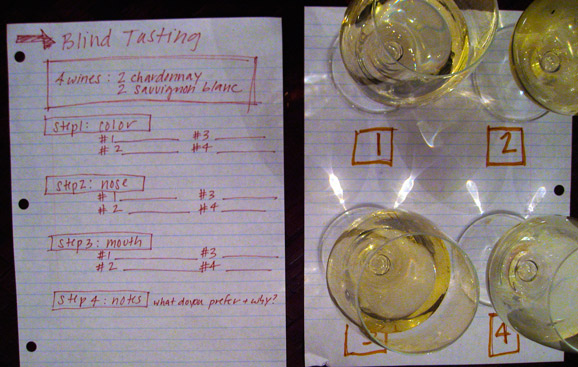 Blind Tasting
4 wines: 2 chardonnay
2 sauvignon blanc
Step1: color
#1 #3
#2 #4
Step2: nose
#1 #3
#2 #4
Step3: mouth
#1 #3
#2 #4
Step 4: notes what do you prefer + why?
1 2
3 4